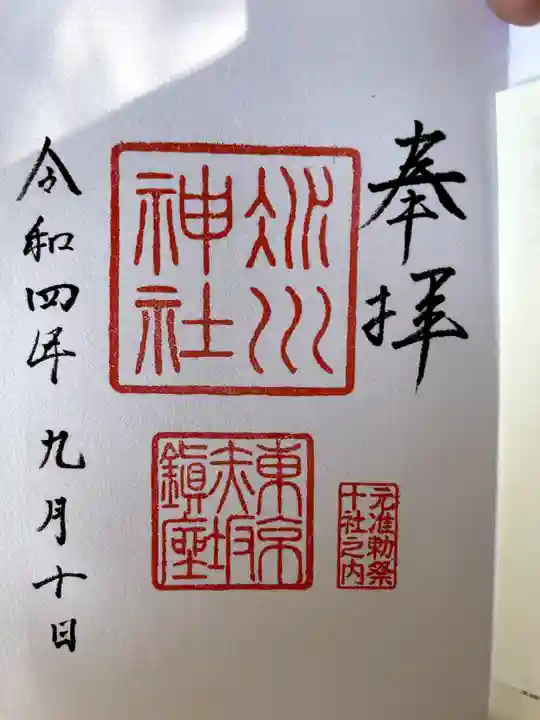 奉拝
氷川
神社
東京
赤坂
鎮座
元准勅祭
十社之内
令和四年九月十日